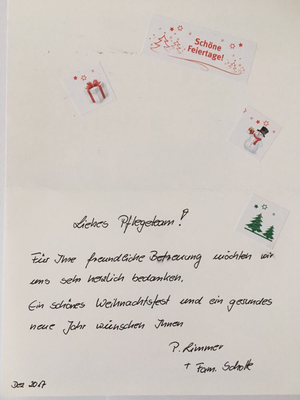 Schöne
Feiertage!
Liebes Pflegeteam!
Für Ihre freundliche Betreuung möchten wir
uns sehr herzlich bedanken.
Ein schönes Weihnachtsfest und ein gesundes
neue Jahr wünschen Ihnen
P. Rimmer
+ Fam. Scholte
Dez 2017